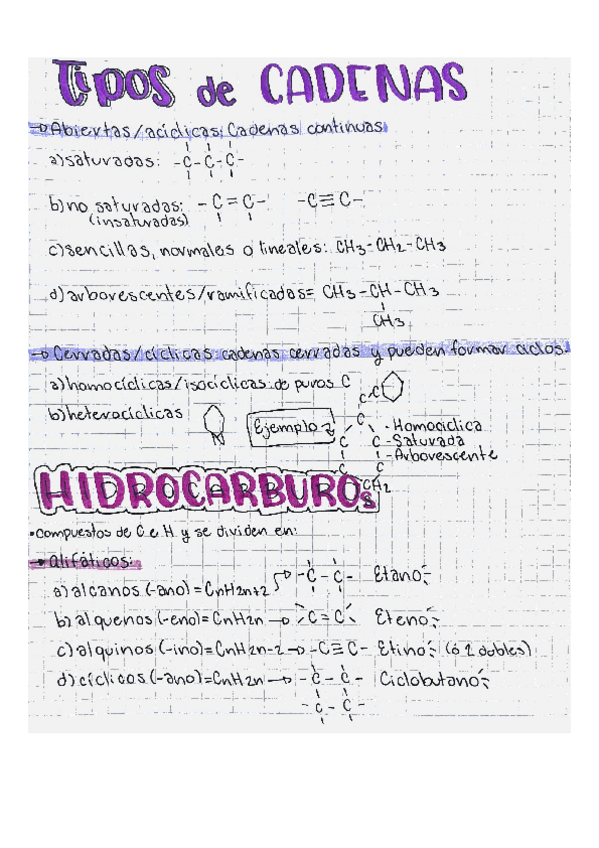 Tipos de CADENAS
→ Abiertas/acíclicas: Cadenas continuas
a) saturadas: -C-C-C-
b) no saturadas: -C=C- -C≡C-
(insaturadas)
c) sencillas, normales o lineales: CH3-CH2-CH3
d) arborescentes/ramificadas= CH3-CH-CH3
CH3
→ Cerradas/cíclicas: cadenas cerradas y pueden formar ciclos.
a) homocíclicas/isocíclicas: de puros C
b) heterocíclicas
N
Ejemplo
C-C
C
C C
C C
CH2
- Homociclica
- Saturada
- Arborescente
HIDROCARBUROs
• compuestos de C e H y se dividen en:
→ alifáticos:
a) alcanos (-ano) = CnH2n+2 → -C-C- Etano
b) alquenos (-eno) = CnH2n → C=C Eteno
c) alquinos (-ino) = CnH2n-2 → -C≡C- Etino (ó 2 dobles)
d) cíclicos (-ano) = CnH2n → -C-C- Ciclobutano
-C-C-